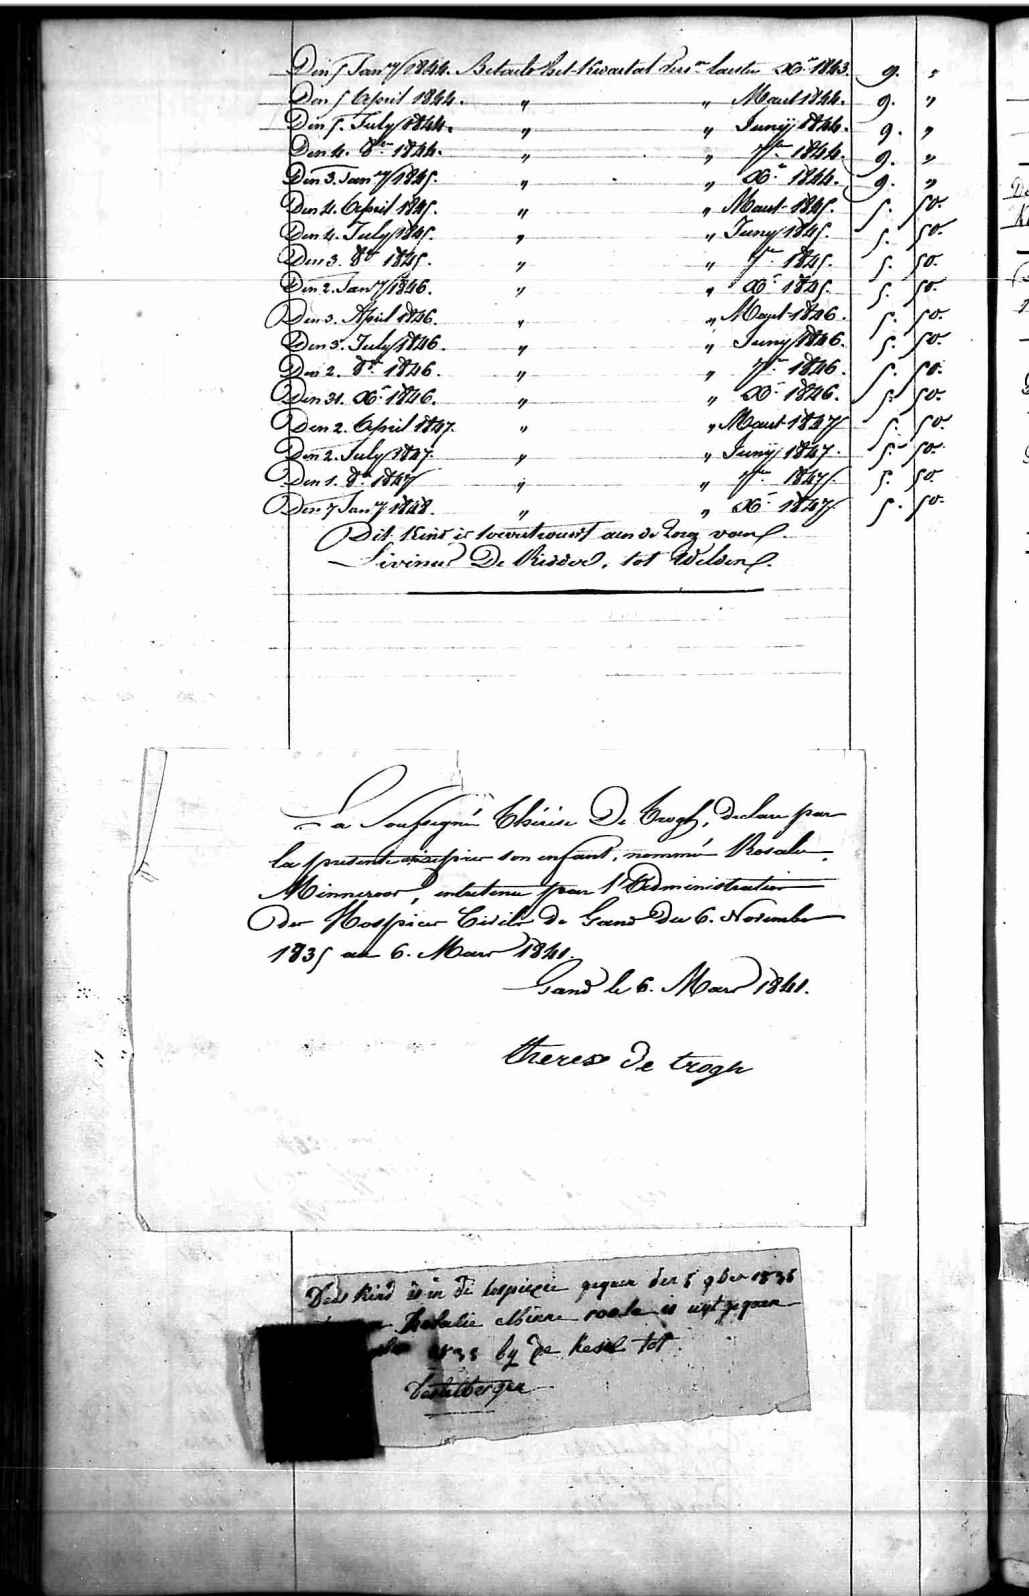 Den 5 Jan.y 1844. Betaelt het Kwartal Verv.n laesten Xb. 1843. 9. "
Den 5 April 1844. " " Maert 1844. 9. "
Den 5. July 1844. " " Junij 1844. 9. "
Den 4. 8b. 1844. " " 7b. 1844. 9. "
Den 3. Jan.y 1845. " " Xb. 1844. 9. "
Den 4. April 1845. " " Maert 1845. 5. 50.
Den 4. July 1845. " " Juny 1845. 5. 50.
Den 3. 8b. 1845. " " 7b. 1845. 5. 50.
Den 2. Jan.y 1846. " " Xb. 1845. 5. 50.
Den 3. April 1846. " " Maert 1846. 5. 50.
Den 3. July 1846. " " Juny 1846. 5. 50.
Den 2. 8b. 1846. " " 7b. 1846. 5. 50.
Den 31. Xb. 1846. " " Xb. 1846. 5. 50.
Den 2. April 1847. " " Maert 1847 5. 50.
Den 2. July 1847. " " Junij 1847. 5. 50.
Den 1. 8b. 1847 " " 7b. 1847. 5. 50.
Den 7 Jan.y 1848. " " Xb. 1847. 5. 50.
Dit Kind is toevertrouwt aen de Zorg van
Livinus De Ridder, tot Welden.
La Soussigné Thérèse De Trogh, declare par
la presente son enfant, nommé Rosalie
Minneroo, entretenu par l'Administration
des Hospices Civils de Gand du 6. Novembre
1835 au 6. Mars 1841.
Gand le 6. Mars 1841.
therese de trogh
Dees kind is in de hospicen gegaen den 5 9ber 1835
is uyt gegaen
1835 by de Kesel tot
Destelbergen